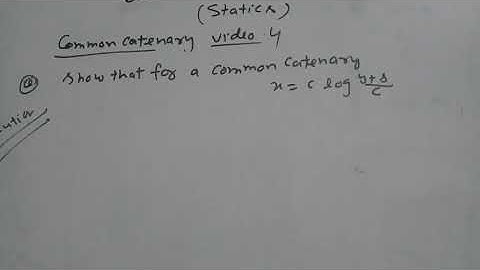 (Statics)
Common catenary video 4
Q Show that for a common catenary
x = c log y+s/c